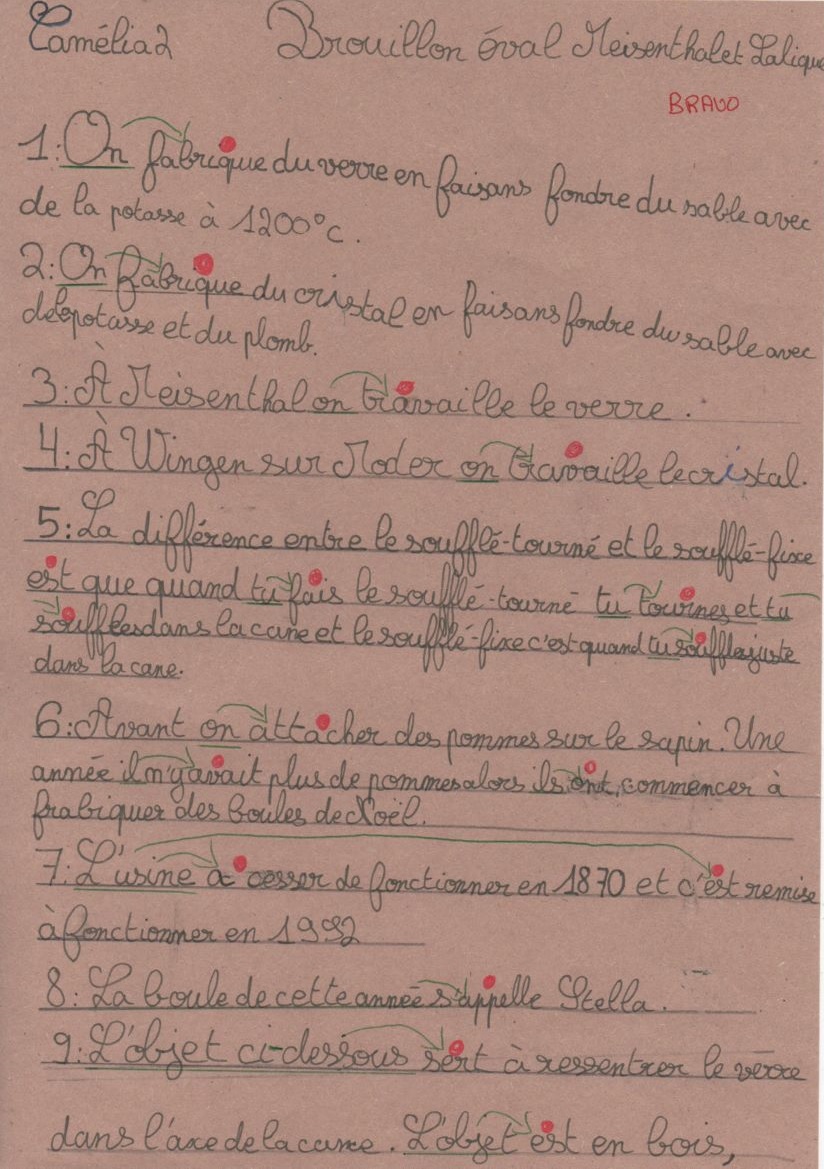 Camélia2 Brouillon éval Meisenthal et Lalique
BRAVO
1: On fabrique du verre en faisans fondre du sable avec
de la potasse à 1200°c.
2: On fabrique du cristal en faisans fondre du sable avec
de la potasse et du plomb.
3: À Meisenthal on travaille le verre.
4: À Wingen sur Moder on travaille le cristal.
5: La différence entre le soufflé-tourné et le soufflé-fixe
est que quand tu fais le soufflé-tourné tu tournes et tu
souffles dans la cane et le soufflé-fixe c'est quand tu souffles juste
dans la cane.
6: Avant on attacher des pommes sur le sapin. Une
année il n'y avait plus de pommes alors ils ont commencer à
frabiquer des boules de Noël.
7: L'usine a cesser de fonctionner en 1870 et c'est remise
à fonctionner en 1992
8: La boule de cette année s'appelle Stella.
9: L'objet ci-dessous sert à ressentrer le verre
dans l'axe de la canne. L'objet est en bois,